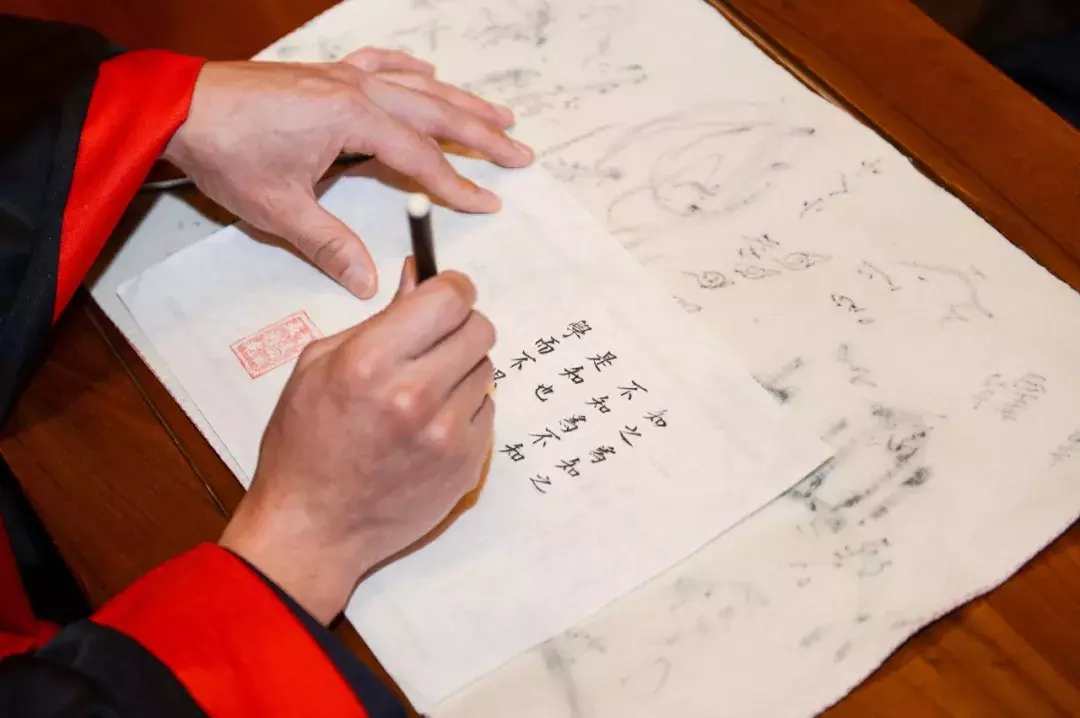 知之為知之
不知為不知
是知也
學而不